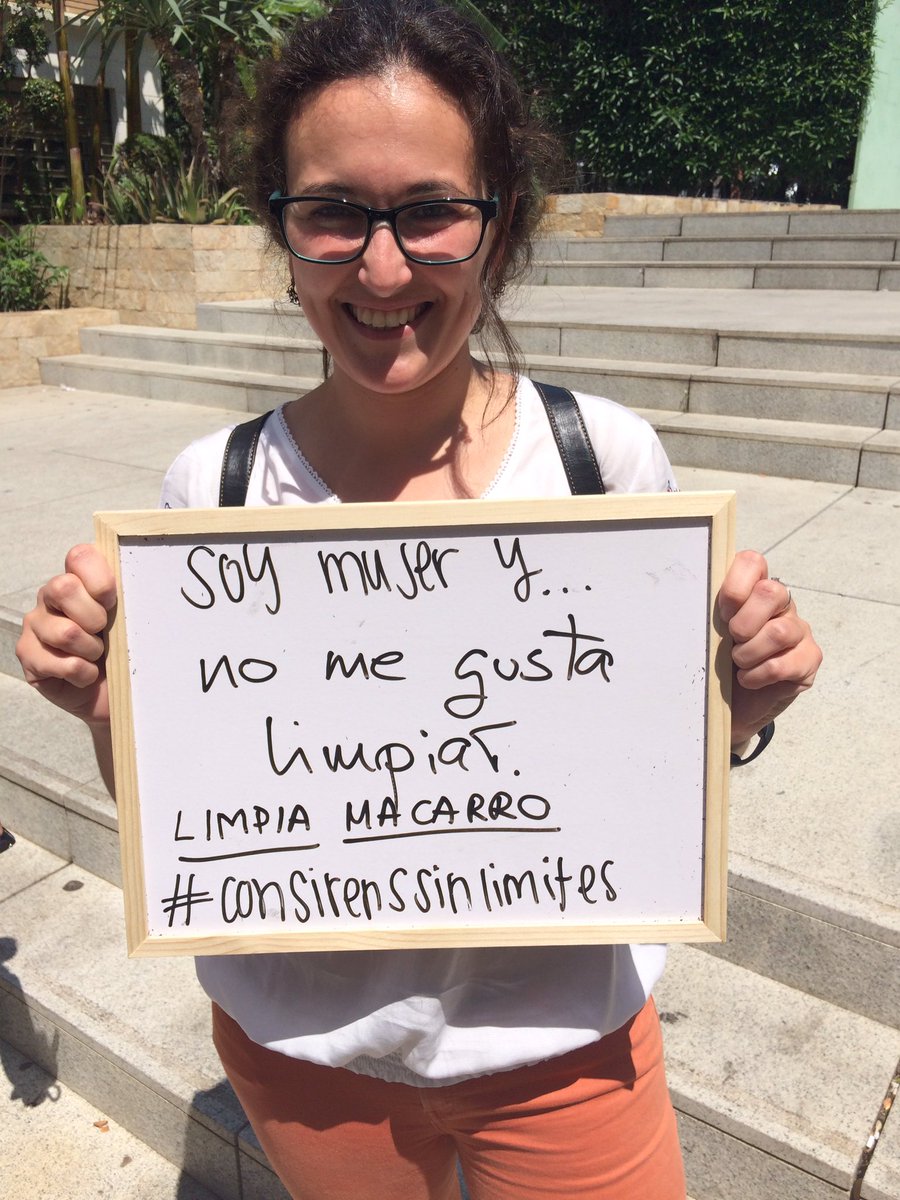 Soy mujer y...
no me gusta
limpiar.
LIMPIA MACARRO
#consirenssinlimites